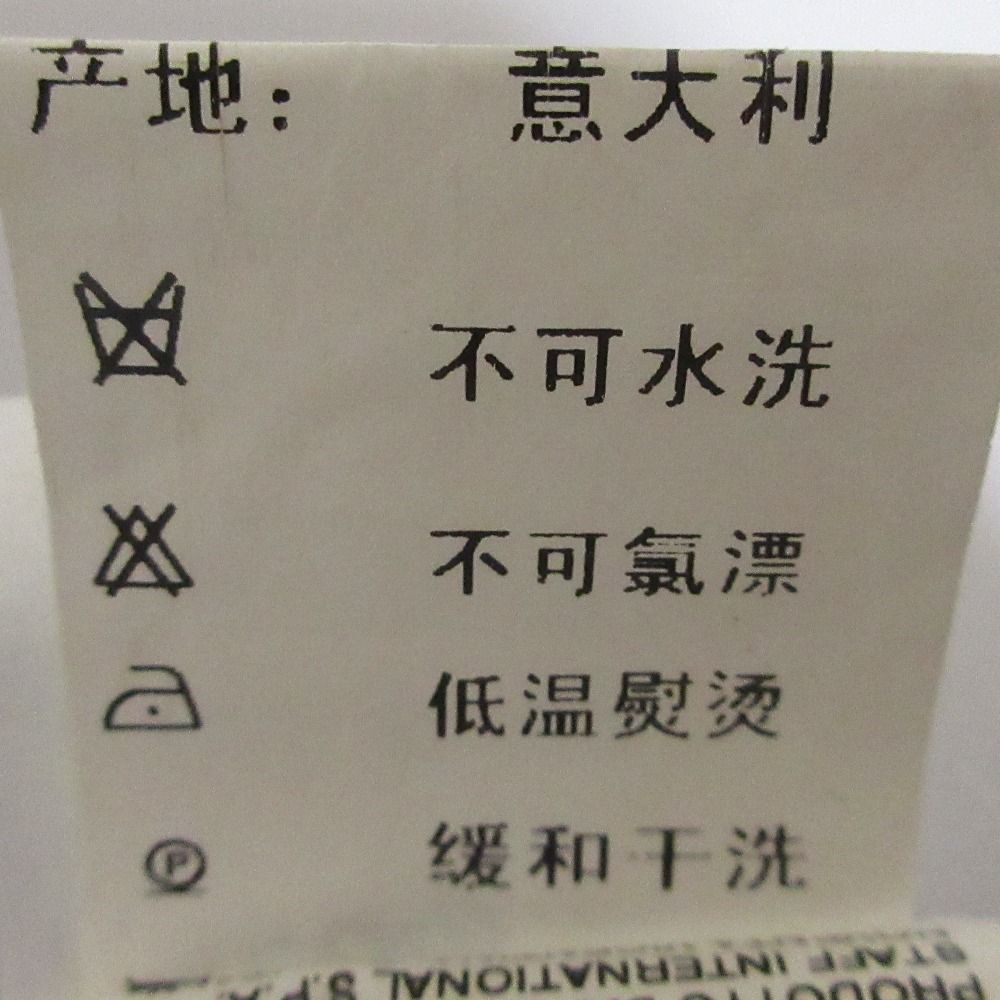 产地： 意大利
不可水洗
不可氯漂
低温熨烫
P 缓和干洗
STAFF INTERNATIONAL S.P.A.